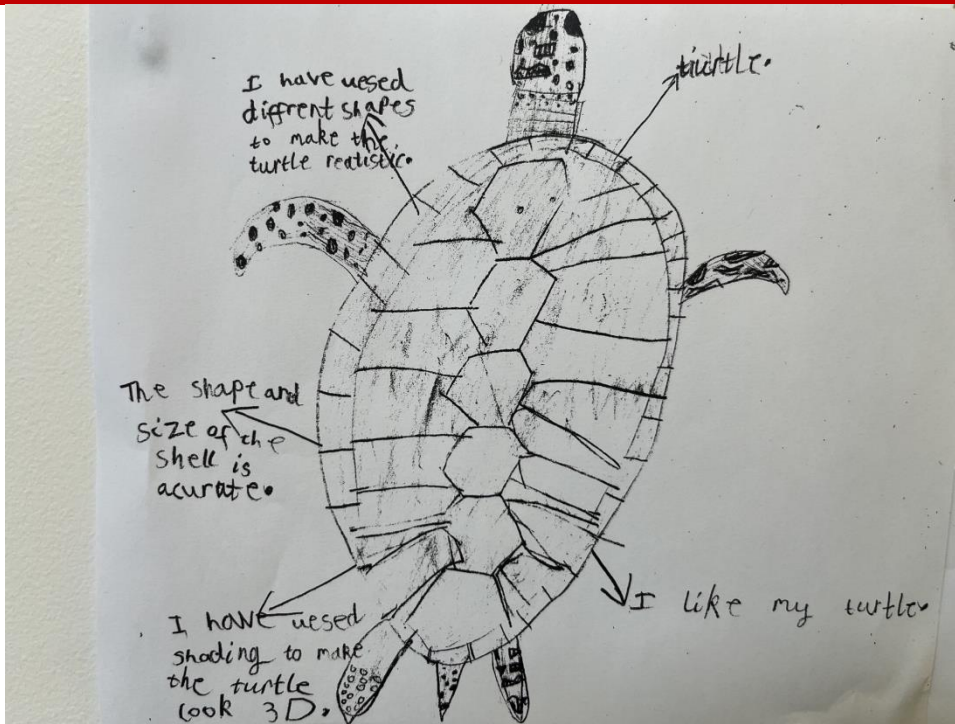 I have uesed
diffrent shapes
to make the
turtle realistic.
turtle.
The shape and
size of the
shell is
acurate.
I like my turtle.
I have uesed
shading to make
the turtle
look 3D.